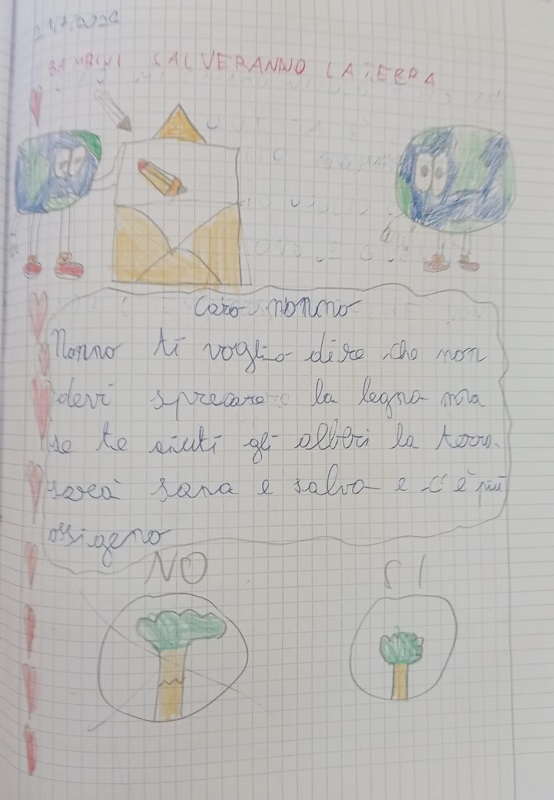 BAMBINI SALVERANNO LA TERRA
Caro nonno
Nonno ti voglio dire che non
devi sprecare la legna ma
se te aiuti gli alberi la terra
sarà sana e salva e c'è più
ossigeno
NO
SI